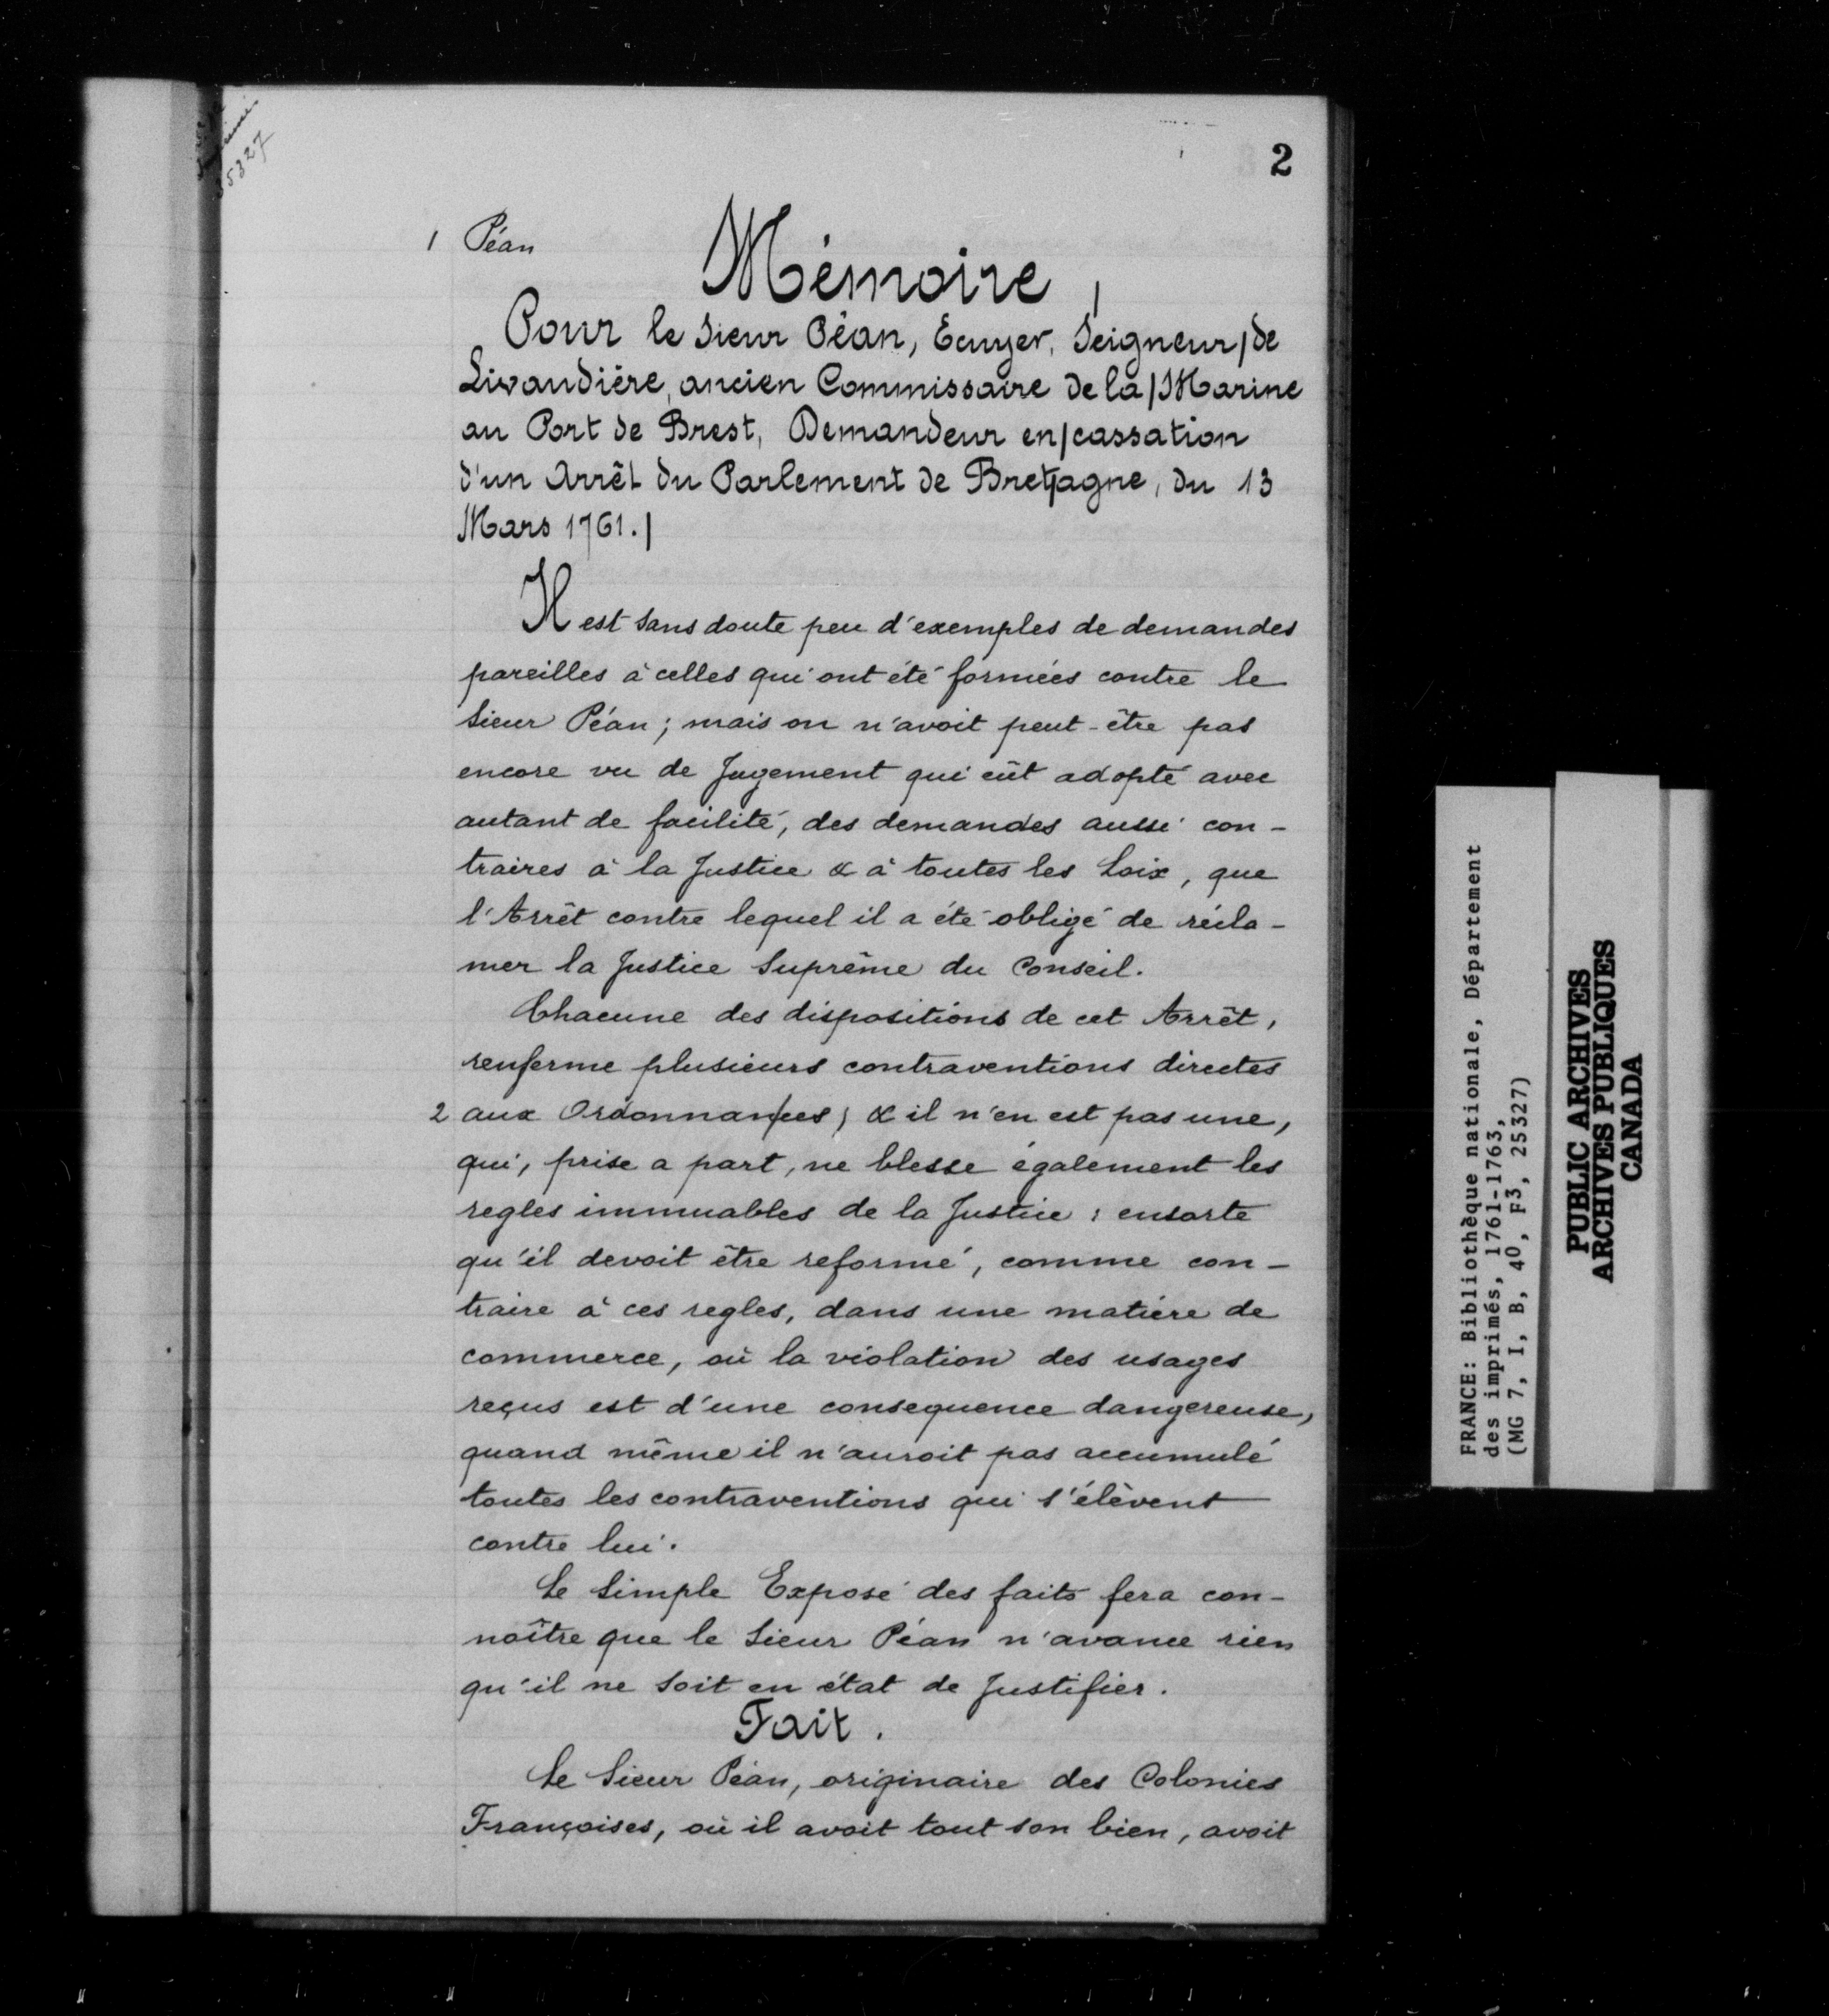 25327
2
1 Péan
Mémoire |
Pour le Sieur Péan, Ecuyer, Seigneur | de
Livaudière, ancien Commissaire de la | Marine
au Port de Brest, Demandeur en | cassation
d'un Arrêt du Parlement de Bret|agne, du 13
Mars 1761. |
Il est sans doute peu d'exemples de demandes
pareilles à celles qui ont été formées contre le
Sieur Péan ; mais on n'avoit peut-être pas
encore vu de Jugement qui eût adopté avec
autant de facilité, des demandes aussi con-
traires à la Justice & à toutes les Loix, que
l'Arrêt contre lequel il a été obligé de récla-
mer la Justice Suprême du Conseil.
Chacune des dispositions de cet Arrêt,
renferme plusieurs contraventions directes
2 aux Ordonnan/ces ; & il n'en est pas une,
qui, prise a part, ne blesse également les
regles immuables de la Justice : ensorte
qu'il devoit être reformé, comme con-
traire à ces regles, dans une matière de
commerce, où la violation des usages
reçus est d'une consequence dangereuse,
quand même il n'auroit pas accumulé
toutes les contraventions qui s'élèvent
contre lui.
Le simple Exposé des faits fera con-
noître que le Sieur Péan n'avance rien
qu'il ne soit en état de Justifier.
Fait.
Le Sieur Péan, originaire des Colonies
Françoises, où il avoit tout son bien, avoit
FRANCE: Bibliothèque nationale, Département
des imprimés, 1761-1763,
(MG 7, I, B, 40, F3, 25327)
PUBLIC ARCHIVES
ARCHIVES PUBLIQUES
CANADA